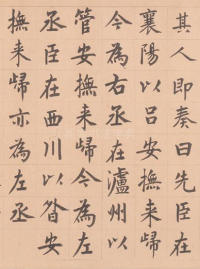 其人即奏曰先臣在
襄陽以呂安撫来歸
今為右丞在瀘州以
管安撫来歸令為左
丞臣在西川以昝安
撫来歸亦為左丞